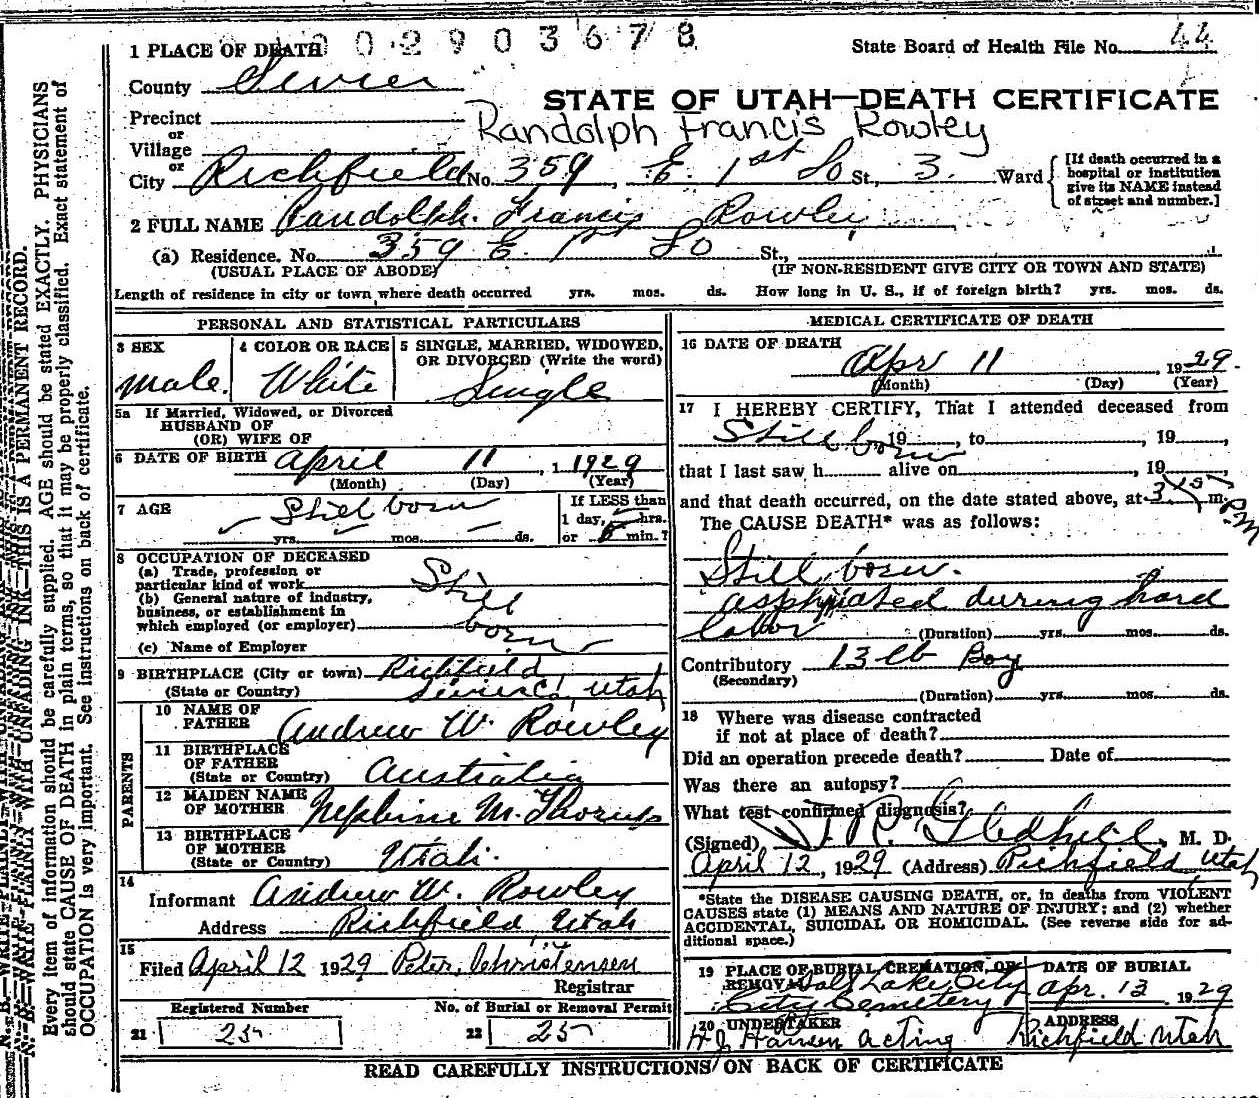 1 PLACE OF DEATH 0 0 2 9 0 3 6 7 8 State Board of Health File No. 44
County Sevier
STATE OF UTAH—DEATH CERTIFICATE
Precinct
Randolph Francis Rowley
or
Village
or
City Richfield No. 359, E. 1st So St., 3. Ward
[If death occurred in a
hospital or institution
give its NAME instead
of street and number.]
2 FULL NAME Randolph Francis Rowley
(a) Residence. No. 359 E. 1st So St.,
(USUAL PLACE OF ABODE) (IF NON-RESIDENT GIVE CITY OR TOWN AND STATE)
Length of residence in city or town where death occurred yrs. mos. ds. How long in U. S., if of foreign birth? yrs. mos. ds.
PERSONAL AND STATISTICAL PARTICULARS
3 SEX
Male.
4 COLOR OR RACE
White
5 SINGLE, MARRIED, WIDOWED,
OR DIVORCED (Write the word)
Single
5a If Married, Widowed, or Divorced
HUSBAND OF
(OR) WIFE OF
6 DATE OF BIRTH April 11, 1929
(Month) (Day) (Year)
7 AGE Still born
yrs. mos. ds.
If LESS than
1 day, hrs.
or min.?
8 OCCUPATION OF DECEASED
(a) Trade, profession or
particular kind of work Still
(b) General nature of industry,
business, or establishment in
which employed (or employer) born
(c) Name of Employer
9 BIRTHPLACE (City or town) Richfield
(State or Country) Sevier Co, Utah
PARENTS
10 NAME OF
FATHER Andrew W. Rowley
11 BIRTHPLACE
OF FATHER
(State or Country) Australia
12 MAIDEN NAME
OF MOTHER Nephine M. Thorup
13 BIRTHPLACE
OF MOTHER
(State or Country) Utah.
14
Informant Andrew W. Rowley
Address Richfield, Utah
15
Filed April 12 1929 Peter Christensen
Registrar
Registered Number No. of Burial or Removal Permit
21 25 22 25
MEDICAL CERTIFICATE OF DEATH
16 DATE OF DEATH
Apr 11, 1929.
(Month) (Day) (Year)
17 I HEREBY CERTIFY, That I attended deceased from
Still born 19, to , 19,
that I last saw h alive on , 19,
and that death occurred, on the date stated above, at 3 15 m. P.M
The CAUSE DEATH* was as follows:
Still born.
asphyxiated during hard
labor (Duration) yrs. mos. ds.
Contributory 13 lb Boy
(Secondary)
(Duration) yrs. mos. ds.
18 Where was disease contracted
if not at place of death?
Did an operation precede death? Date of
Was there an autopsy?
What test confirmed diagnosis?
(Signed) Gledhill, M. D.
April 12, 1929 (Address) Richfield Utah
*State the DISEASE CAUSING DEATH, or, in deaths from VIOLENT
CAUSES state (1) MEANS AND NATURE OF INJURY; and (2) whether
ACCIDENTAL, SUICIDAL OR HOMICIDAL. (See reverse side for ad-
ditional space.)
19 PLACE OF BURIAL, CREMATION, OR
REMOVAL Salt Lake City
City Cemetery
DATE OF BURIAL
Apr. 13, 1929
20 UNDERTAKER
H J Hansen acting
ADDRESS
Richfield Utah
READ CAREFULLY INSTRUCTIONS ON BACK OF CERTIFICATE
N. B.—WRITE PLAINLY WITH UNFADING INK—THIS IS A PERMANENT RECORD.
Every item of information should be carefully supplied. AGE should be stated EXACTLY. PHYSICIANS
should state CAUSE OF DEATH in plain terms, so that it may be properly classified. Exact statement of
OCCUPATION is very important. See instructions on back of certificate.